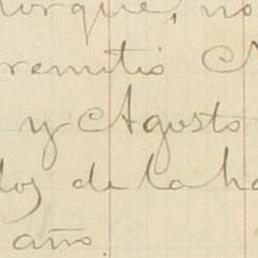 porque, no
remitió
y Agosto
dos de la ha
año.